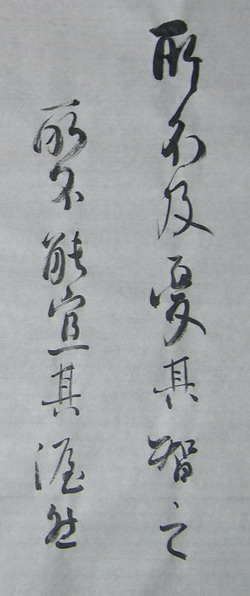 所不及憂其智之
所不能宜其渥然